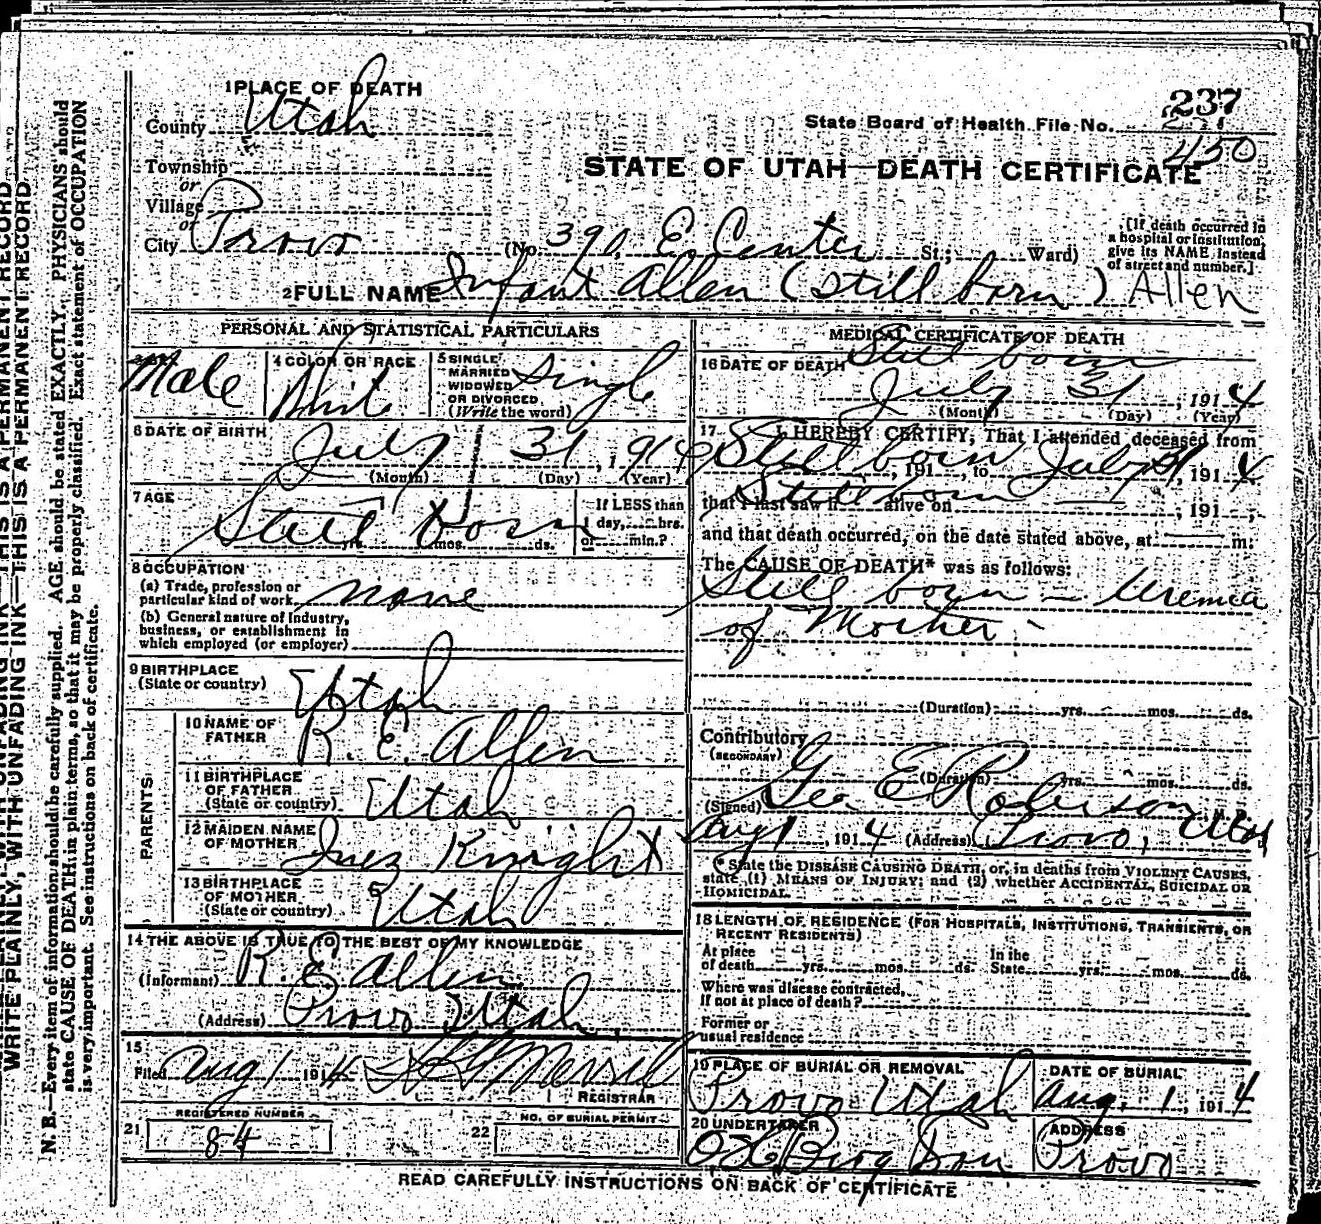 1 PLACE OF DEATH
County Utah
State Board of Health File No. 237
450
Township
or
Village
or
City Provo (No. 390, E. Center St.; Ward)
STATE OF UTAH—DEATH CERTIFICATE
[If death occurred in a hospital or institution, give its NAME instead of street and number.]
2 FULL NAME Infant Allen (Still born) Allen
PERSONAL AND STATISTICAL PARTICULARS
Male
4 COLOR OR RACE White
5 SINGLE MARRIED WIDOWED OR DIVORCED (Write the word) Single
6 DATE OF BIRTH July 31, 1914
(Month) (Day) (Year)
7 AGE Still born
yrs. mos. ds.
If LESS than 1 day, hrs. or min.?
8 OCCUPATION
(a) Trade, profession or particular kind of work none
(b) General nature of Industry, business, or establishment in which employed (or employer)
9 BIRTHPLACE (State or country) Utah
PARENTS
10 NAME OF FATHER R. E. Allen
11 BIRTHPLACE OF FATHER (State or country) Utah
12 MAIDEN NAME OF MOTHER Inez Knight
13 BIRTHPLACE OF MOTHER (State or country) Utah
14 THE ABOVE IS TRUE TO THE BEST OF MY KNOWLEDGE
(Informant) R. E. Allen
(Address) Provo Utah
15
Filed Aug 1 1914 Merrill
REGISTRAR
21 REGISTERED NUMBER 84
22 NO. OF BURIAL PERMIT
MEDICAL CERTIFICATE OF DEATH
Still born
16 DATE OF DEATH July 31, 1914
(Month) (Day) (Year)
17 I HEREBY CERTIFY, That I attended deceased from
Still born, 191 to July 31, 1914
Still born
that I last saw h alive on , 191 ,
and that death occurred, on the date stated above, at m.
The CAUSE OF DEATH* was as follows:
Still born — Uremia
of Mother —
(Duration) yrs. mos. ds.
Contributory
(SECONDARY)
(Duration) yrs. mos. ds.
(Signed) Geo E Roberson
Aug 1, 1914 (Address) Provo, Utah
* State the DISEASE CAUSING DEATH, or, in deaths from VIOLENT CAUSES, state (1) MEANS OF INJURY; and (2) whether ACCIDENTAL, SUICIDAL OR HOMICIDAL.
18 LENGTH OF RESIDENCE (FOR HOSPITALS, INSTITUTIONS, TRANSIENTS, OR RECENT RESIDENTS)
At place of death yrs. mos. ds. In the State yrs. mos. ds.
Where was disease contracted, If not at place of death?
Former or usual residence
19 PLACE OF BURIAL OR REMOVAL Provo Utah
DATE OF BURIAL Aug. 1, 1914
20 UNDERTAKER Berg & Son
ADDRESS Provo
READ CAREFULLY INSTRUCTIONS ON BACK OF CERTIFICATE
WRITE PLAINLY, WITH UNFADING INK—THIS IS A PERMANENT RECORD
N. B.—Every item of information should be carefully supplied. AGE should be stated EXACTLY. PHYSICIANS should
state CAUSE OF DEATH in plain terms, so that it may be properly classified. Exact statement of OCCUPATION
is very important. See instructions on back of certificate.